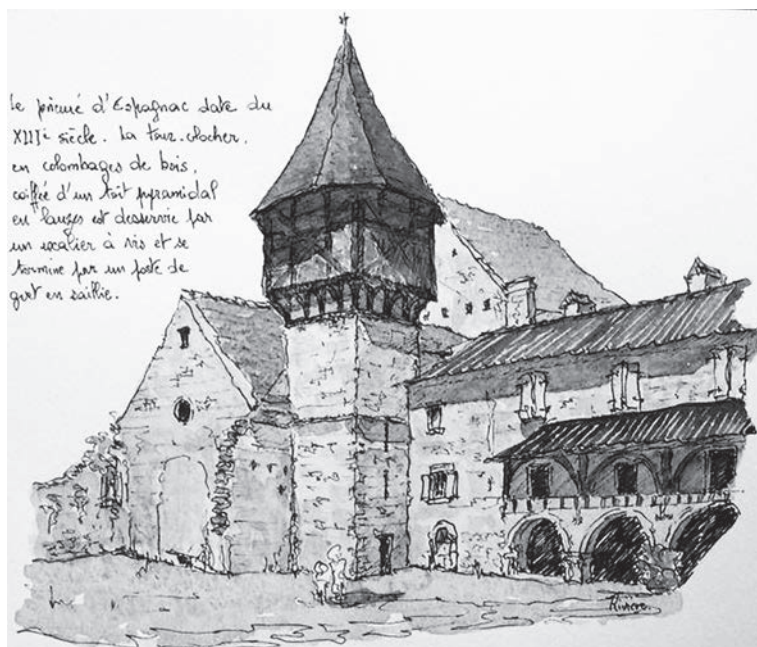 le prieuré d'Espagnac date du
XIIIe siècle. La tour-clocher,
en colombages de bois,
coiffée d'un toit pyramidal
en lauzes est desservie par
un escalier à vis et se
termine par un poste de
guet en saillie.
Rivière